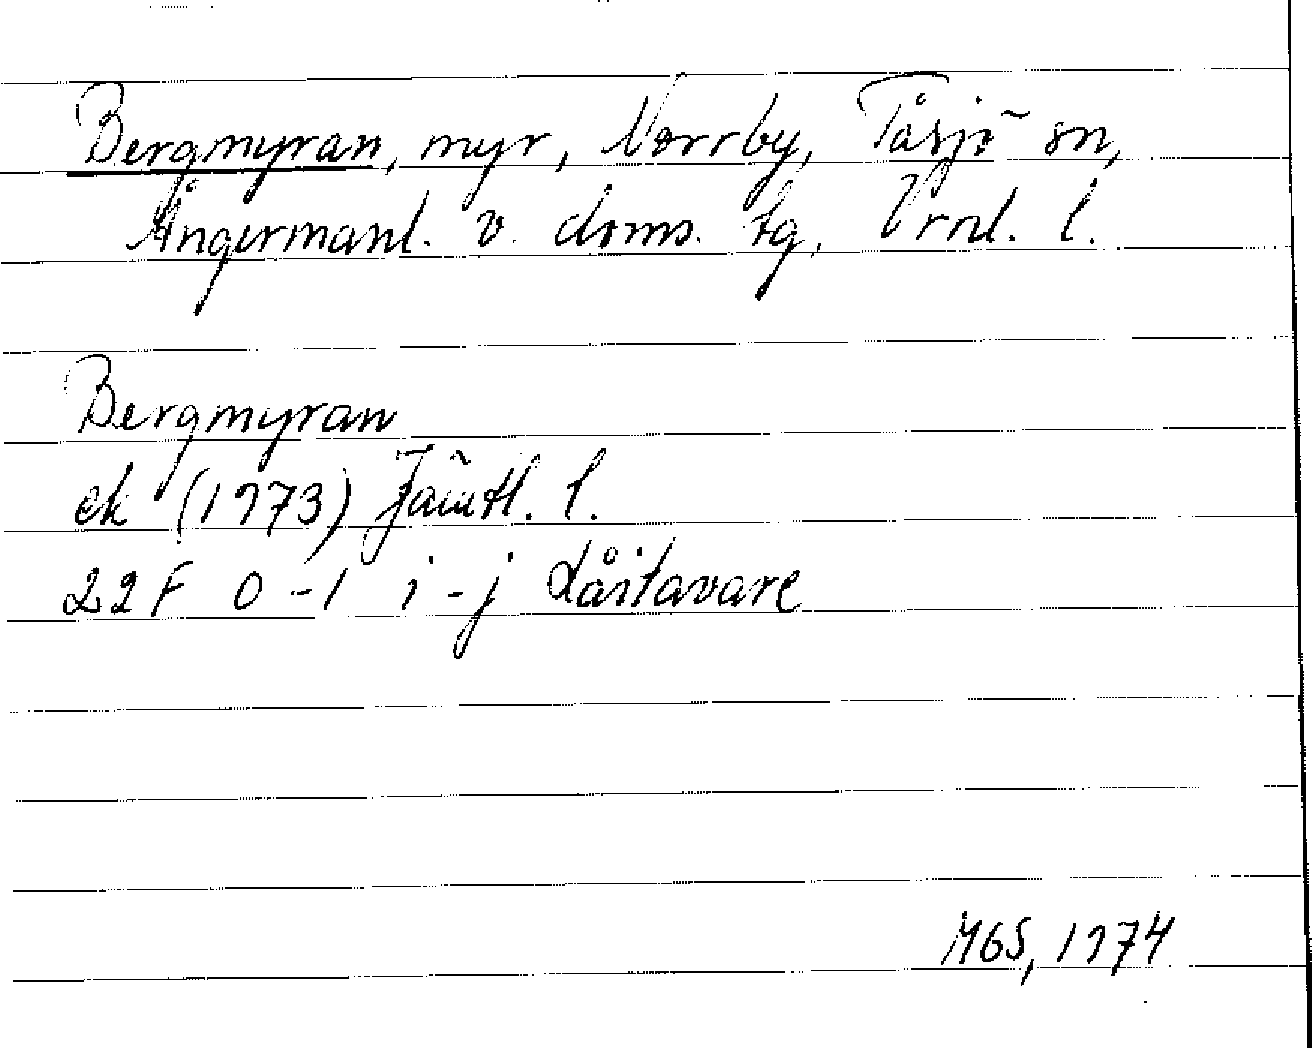 Bergmyran, myr, Norrby, Tåsjö sn,
Ångermanl. v. doms. tg, Vrnl. l.
Bergmyran
ek (1973) Jämtl. l.
22F 0-1 i-j Låitavare
MGS, 1974